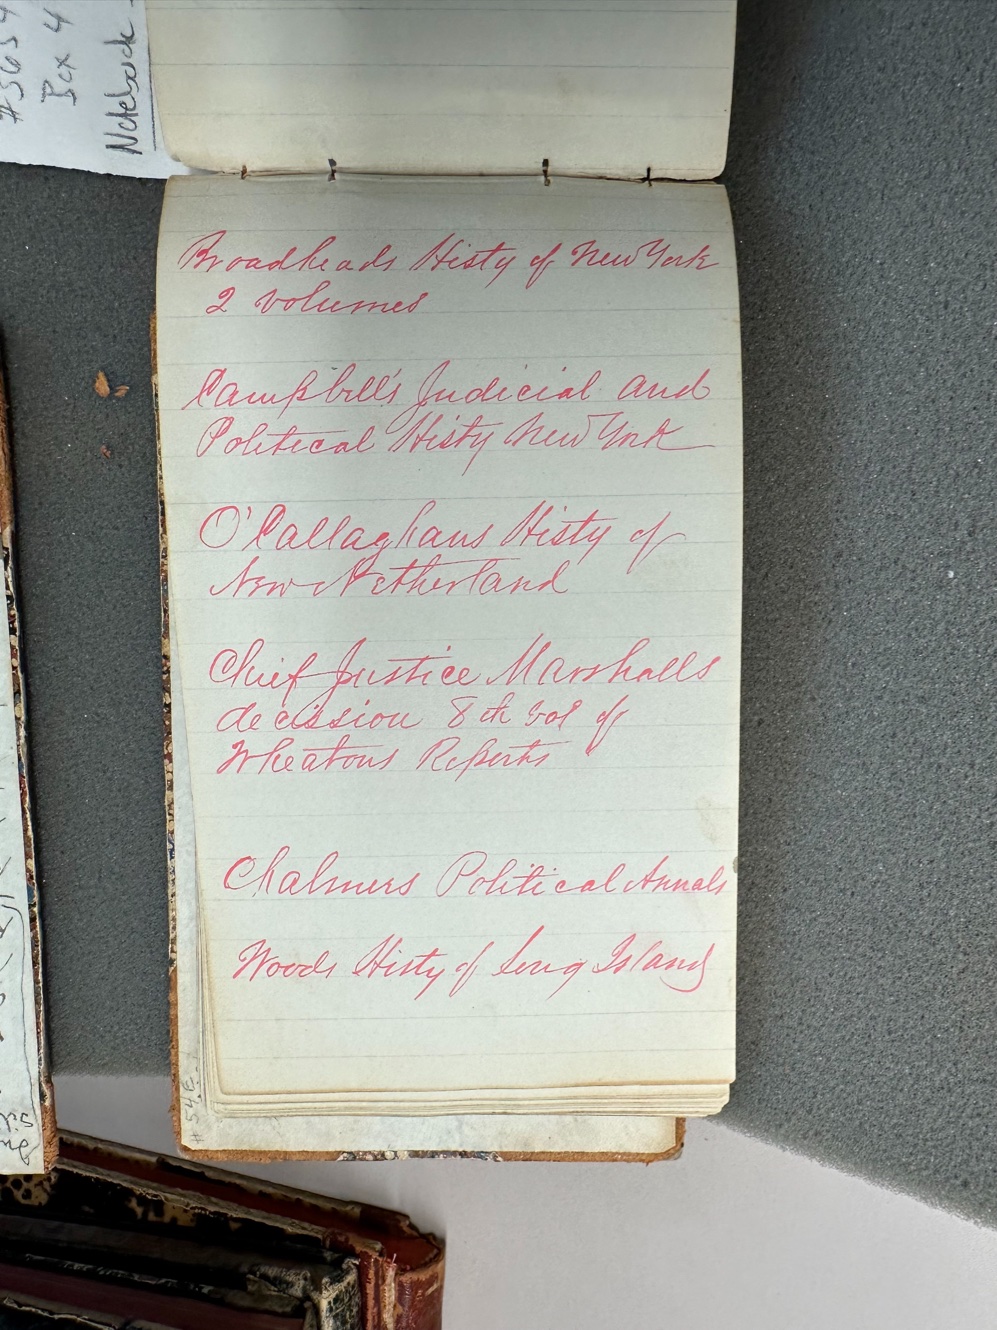 Box 4
Notebook
Broadheads Histy of New York
2 volumes
Campbell's Judicial and
Political Histy New York
O'Callaghans Histy of
New Netherland
Chief Justice Marshalls
decission 8th vol of
Wheatons Reports
Chalmers Political Annals
Woods Histy of Long Island
#54E